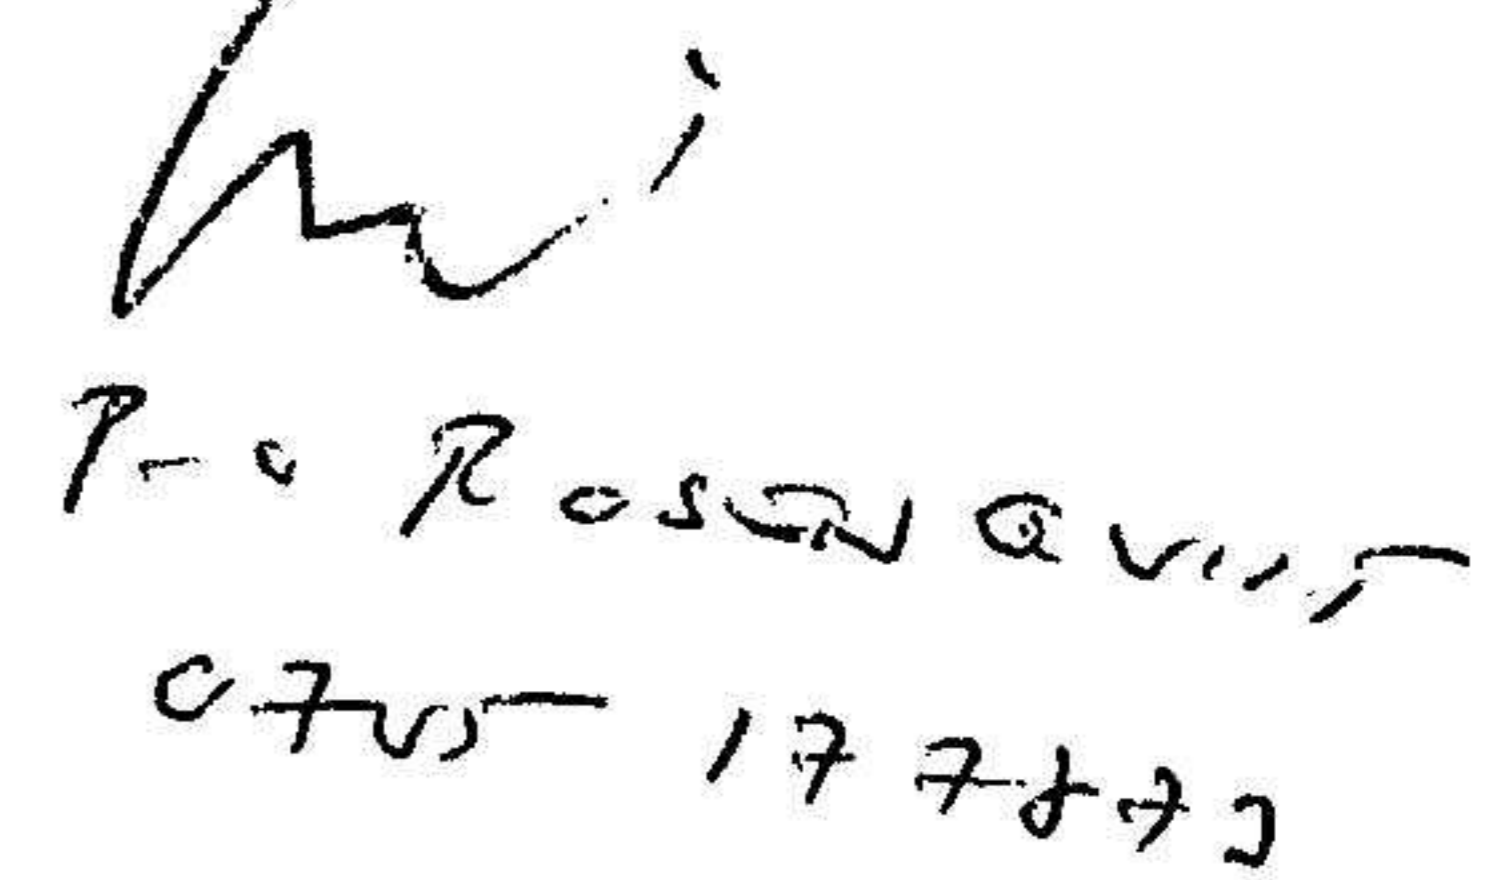 P-O ROSENQVIST
0705 17 78 73